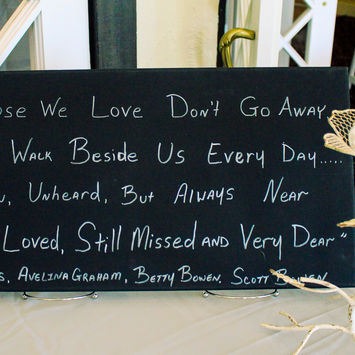 We Love Don't Go Away
Walk Beside Us Every Day.....
Unheard, But Always Near
Loved, Still Missed and Very Dear"
Avelina Graham, Betty Bowen, Scott Bowen